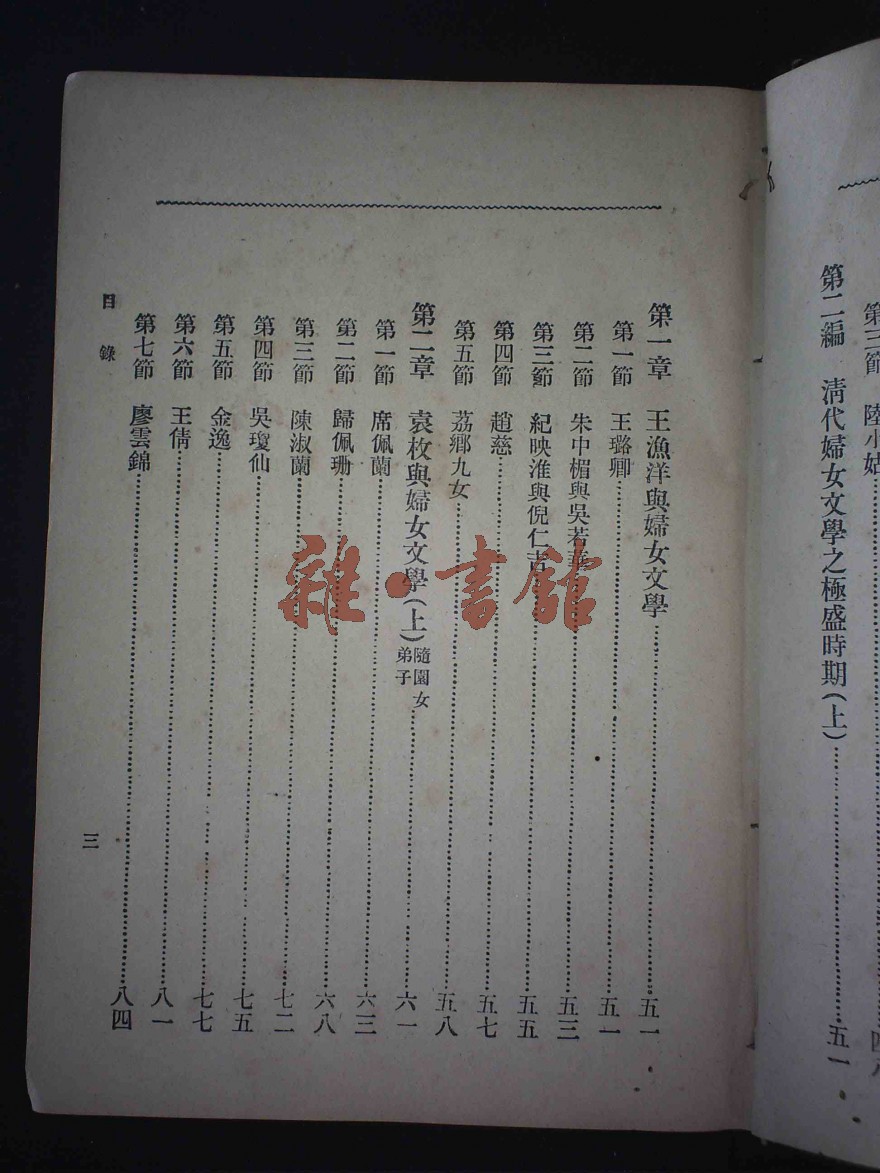 第三節　陸小姑
第二編　清代婦女文學之極盛時期(上)……五一
第一章　王漁洋與婦女文學……五一
第一節　王璐卿……五一
第二節　朱中楣與吳若華……五三
第三節　紀映淮與倪仁吉……五五
第四節　趙慈……五七
第五節　荔鄉九女……五八
第二章　袁枚與婦女文學(上)隨園女弟子……六一
第一節　席佩蘭……六三
第二節　歸佩珊……六八
第三節　陳淑蘭……七二
第四節　吳瓊仙……七五
第五節　金逸……七七
第六節　王倩……八一
第七節　廖雲錦……八四
目錄
三
雜·書館